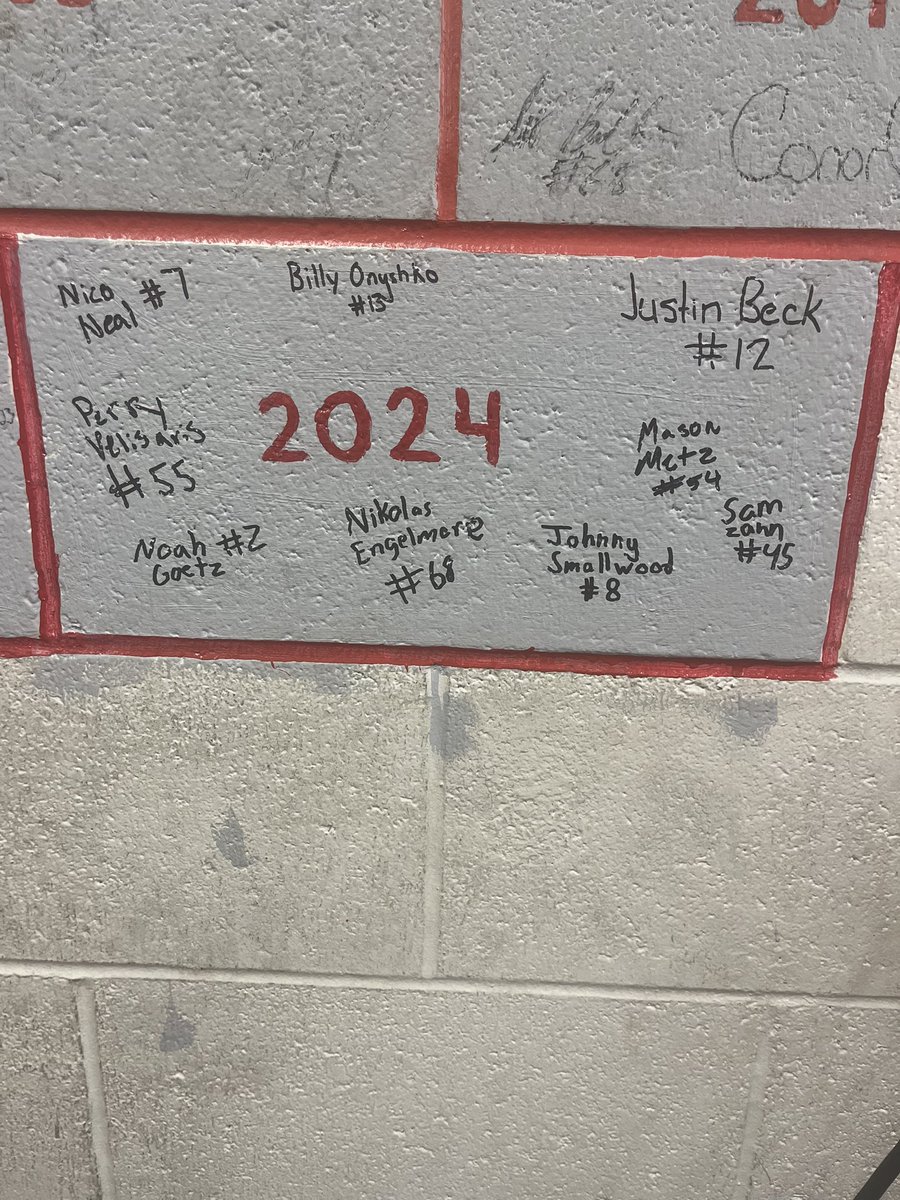 #68
Conor
Nico #7
Neal
Billy Onyshko
#13
Justin Beck
#12
Perry
Velisaris
#55
2024
Mason
Metz
#54
Noah #2
Goetz
Nikolas
Engelmore
#68
Johnny
Smallwood
#8
Sam
Zann
#45